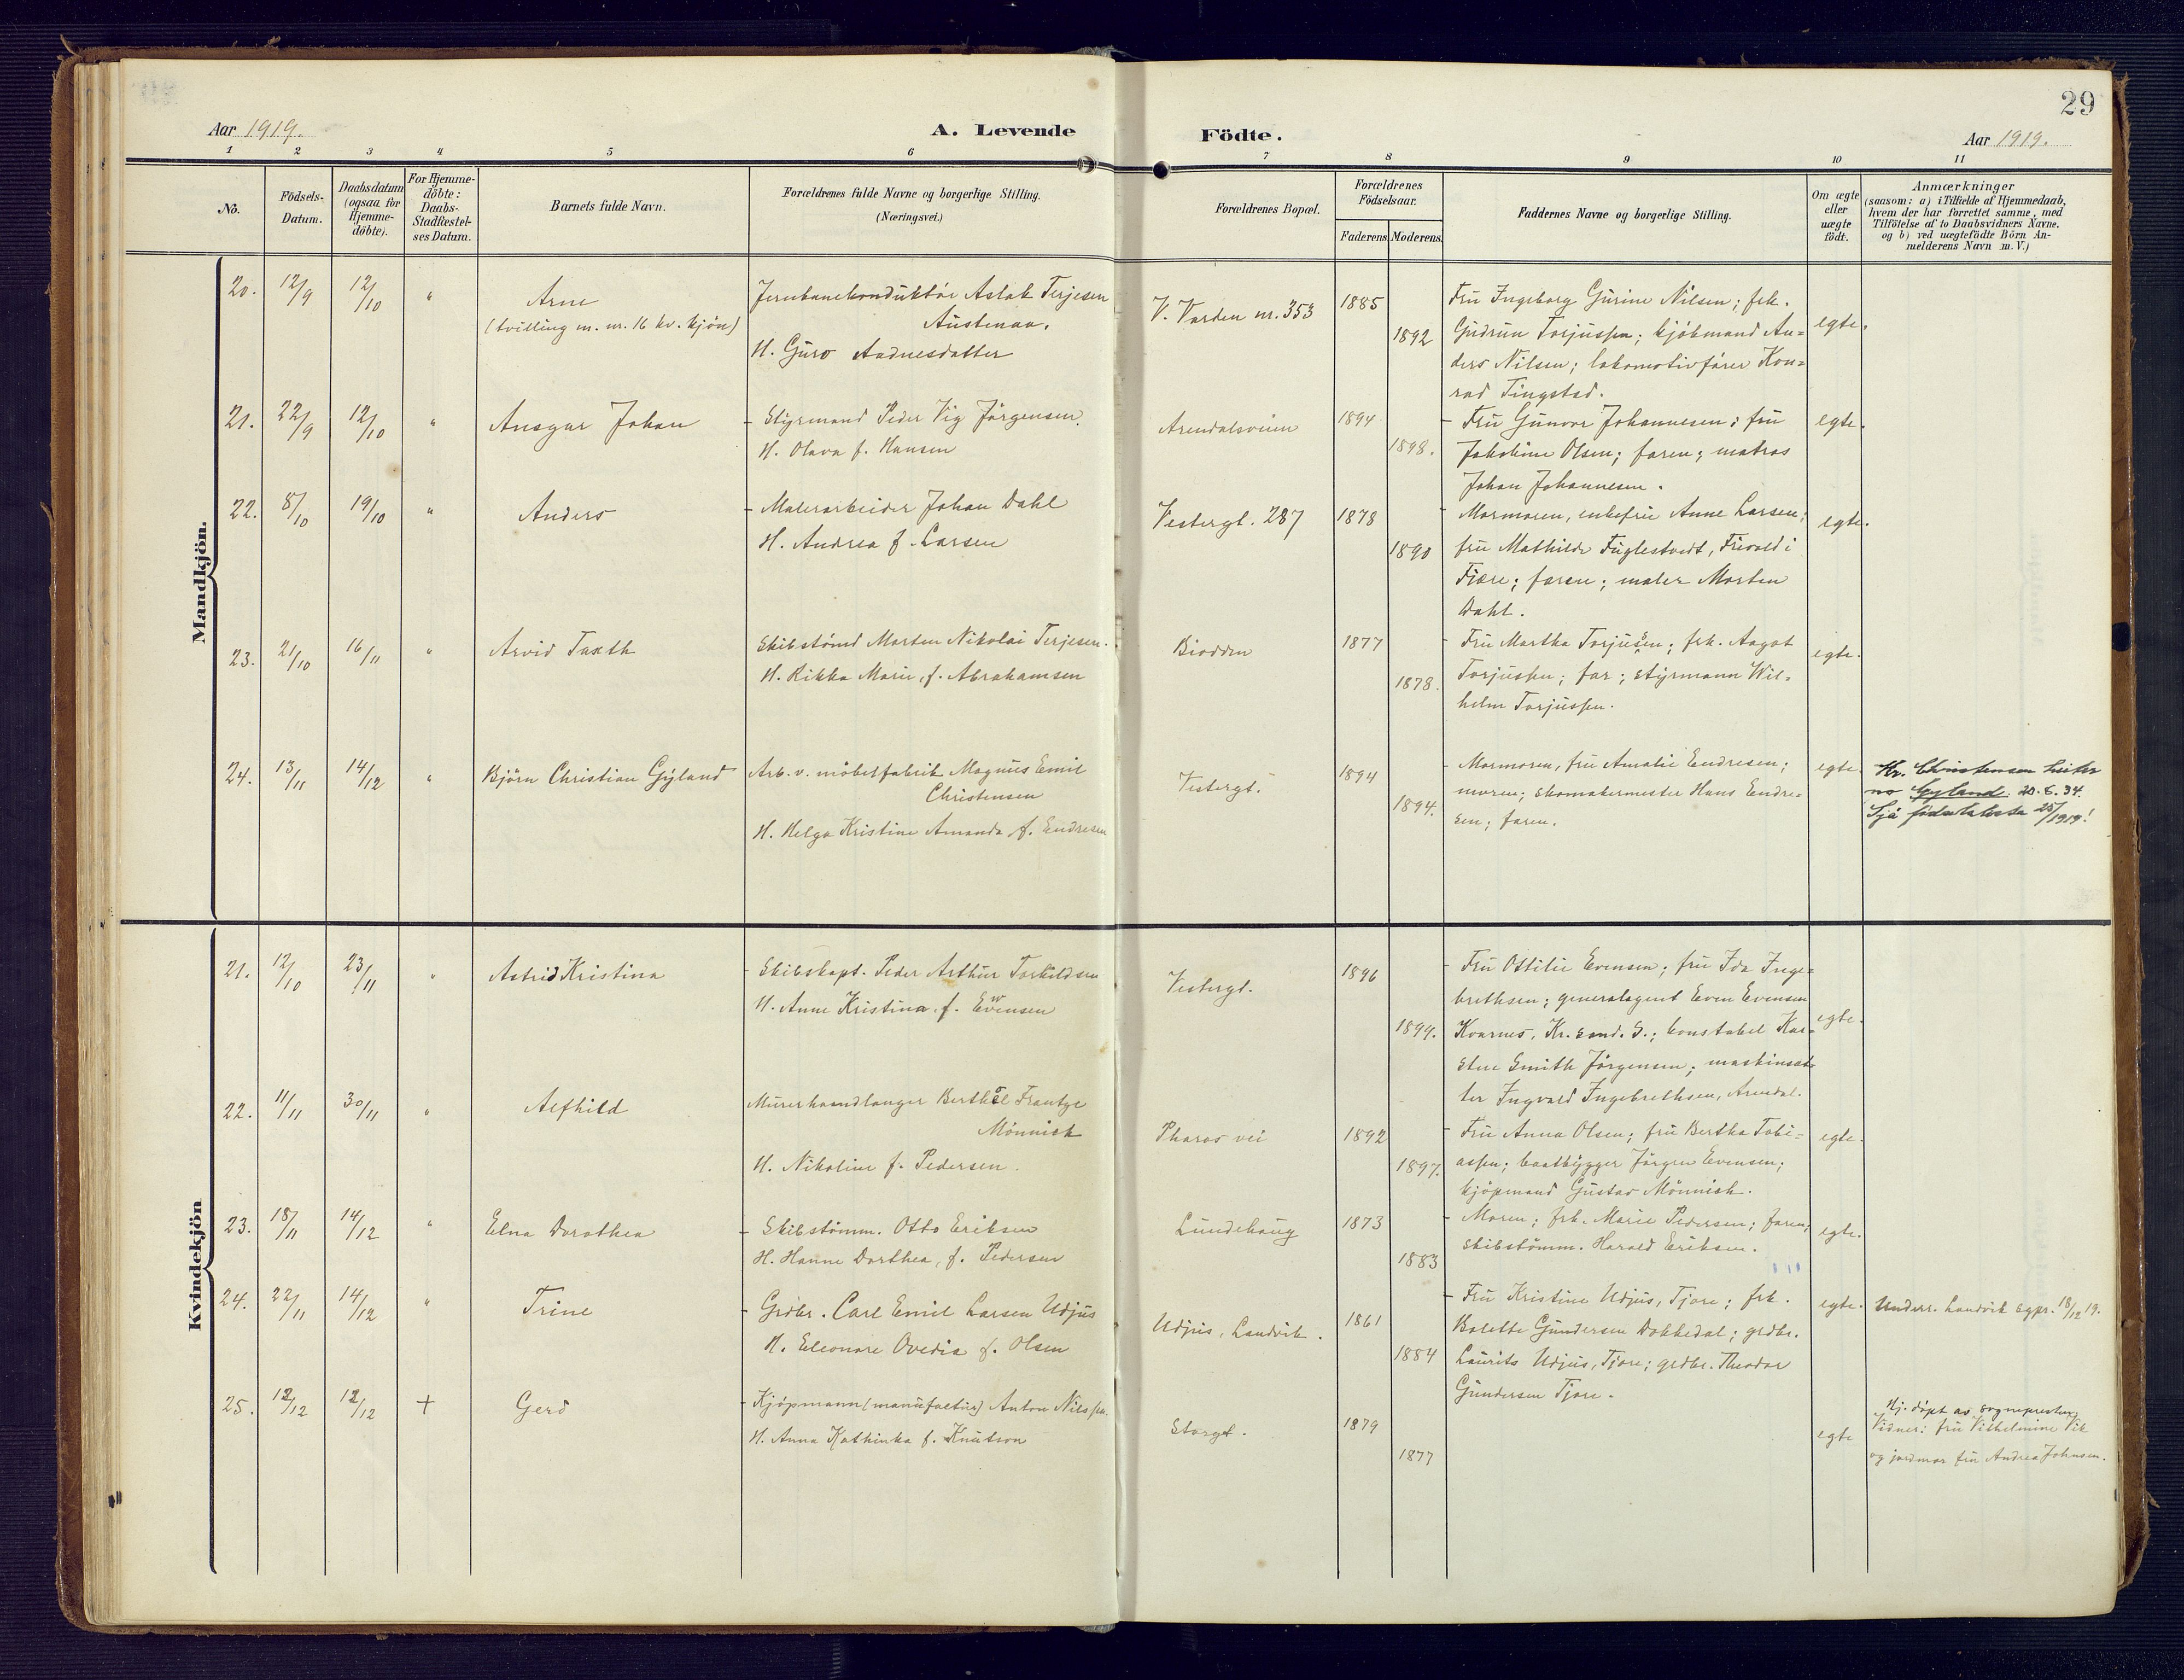 29
Aar 1919.
A. Levende
Födte.
Aar 1919.
1 2 3 4 5 6 7 8 9 10 11
No.
Födsels-Datum.
Daabsdatum (ogsaa for Hjemme-döbte).
For Hjemme-döbte: Daabs-Stadfæstel-ses Datum.
Barnets fulde Navn.
Forældrenes fulde Navne og borgerlige Stilling.
(Næringsvei.)
Forældrenes Bopæl.
Forældrenes Födselsaar.
Faderens Moderens.
Faddernes Navne og borgerlige Stilling.
Om ægte eller uægte födt.
Anmærkninger
(saasom: a) i Tilfælde af Hjemmedaab,
hvem der har forrettet samme, med
Tilföielse af to Daabsvidners Navne,
og b) ved uægtefödte Börn An-
melderens Navn m. V.)
Mandkjön.
20. 12/9 12/10 "
Arne
(tvilling m. nr. 16 kv. kjön)
Jernbanekonduktör Aslak Terjesen
Austenaa.
H. Guro Aadnesdatter
V. Varden nr. 353
1885
1892
Fru Ingeborg Gurine Nilsen; frk.
Gudrun Torjussen; kjöbmand An-
ders Nilsen; lokomotivförer Kon-
rad Tingstad.
egte.
21. 22/9 12/10 "
Ansgar Johan
- Styrmand Peder Vig Jörgensen.
H. Olava f. Hansen
Arendalsveien
1894
1898.
- Fru Gunvor Johannesen; fru
Jakobine Olsen; faren; matros
Johan Johannesen.
egte.
22. 8/10 19/10 "
Anders
- Malerarbeider Johan Dahl
H. Andrea f. Larsen
Vestergt. 287
1878
1890
- Mormoren, enkefru Anne Larsen;
fru Mathilde Fuglestvedt, Frivold i
Fjære; faren; maler Morten
Dahl.
egte.
23. 21/10 16/11 "
Arvid Taxth
Skibstömd Morten Nikolai Terjesen.
H. Rikka Marie, f. Abrahamsen
Biodden
1877
1878.
- Fru Martha Torjusen; frk. Aagot
Torjussen; far; styrmann Wil-
helm Torjussen.
egte.
24. 13/11 14/12 "
Björn Christian Gyland
Arb. v. möbelfabrik Magnus Emil
Christensen
H. Helga Kristine Amanda f. Endresen
Vestergt.
1894
1894.
- Mormoren, fru Amalie Endresen;
moren; skomakermester Hans Endre-
sen; faren.
egte.
Hr. Christensen heiter
no Gyland. 20.6.34.
Sjå 25/1919!
Kvindekjön
21. 12/10 23/11 "
Astrid Kristina
- Skibskapt. Peder Arthur Torkildsen
H. Anne Kristina f. Evensen
Vestergt.
1896
1894.
- Fru Ottilie Evensen; fru Ida Inge-
brethsen; generalagent Even Evensen
Kvarnes, Kr. sand. S.; konstabel Kar-
sten Smith Jörgensen; maskinset-
ter Ingvald Ingebrethsen, Arendal.
egte.
22. 11/11 30/11 "
Alfhild
Murerhaandlanger Berthel Frantze
Mönnich
H. Nikoline f. Pedersen.
Pharos vei
1892
1897.
- Fru Anna Olsen; fru Bertha Tobi-
assen; baatbygger Jörgen Evensen;
kjöpmand Gustav Mönnich.
egte.
23. 18/11 14/12 "
Elna Dorothea
- Skibstömm. Otto Eriksen
H. Hanne Dorthea, f. Pedersen
Lundehaug
1873
1883
- Moren; frk. Marie Pedersen; faren;
skibstömm. Harald Eriksen.
egte.
24. 22/11 14/12 "
Trine
- Grdbr. Carl Emil Larsen Udjus
H. Eleonore Ovedia f. Olsen
Udjus, Landvik.
1861
1884
- Fru Kristine Udjus, Tjore; frk.
Bolette Gundersen Dokkedal; grdbr.
Laurits Udjus, Tjore; grdbr. Theodor
Gundersen Tjore.
egte.
Underr. Landvik sogpr. 18/12 19.
25. 12/12 12/12 +
Gerd
- Kjöpmann (manufactur) Anton Nilssen.
H. Anna Kathinka f. Knutson
Storgt.
1879
1877
egte
Hj. döpt av sognepresten
Vidner: fru Vilhelmine Vik
og jordmor fru Andrea Johnsen.